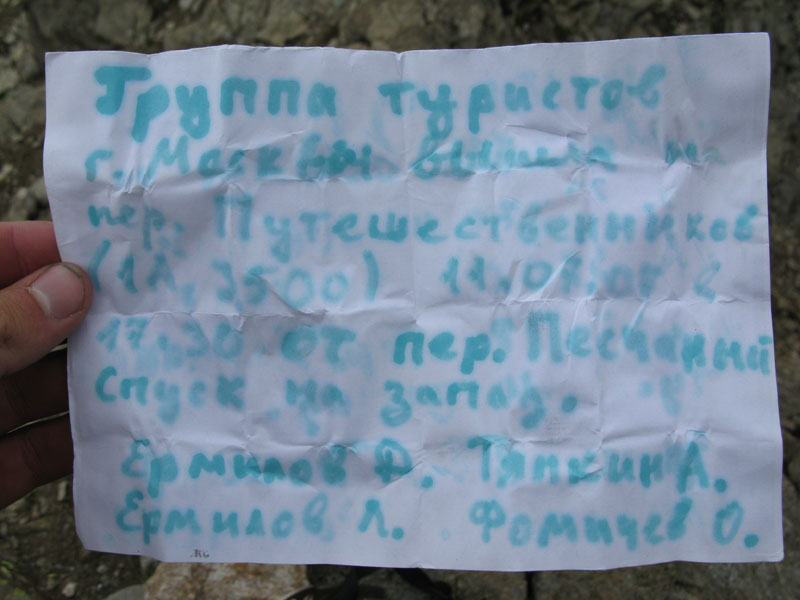 Группа туристов
г. Москвы вышла на
пер. Путешественников
(1А, 3500) 11.07.05 в
17.30 от пер. Песчаный
Спуск на запад.
Ермилов Д. Тяпкин А.
Ермилов Л. Фомичев О.